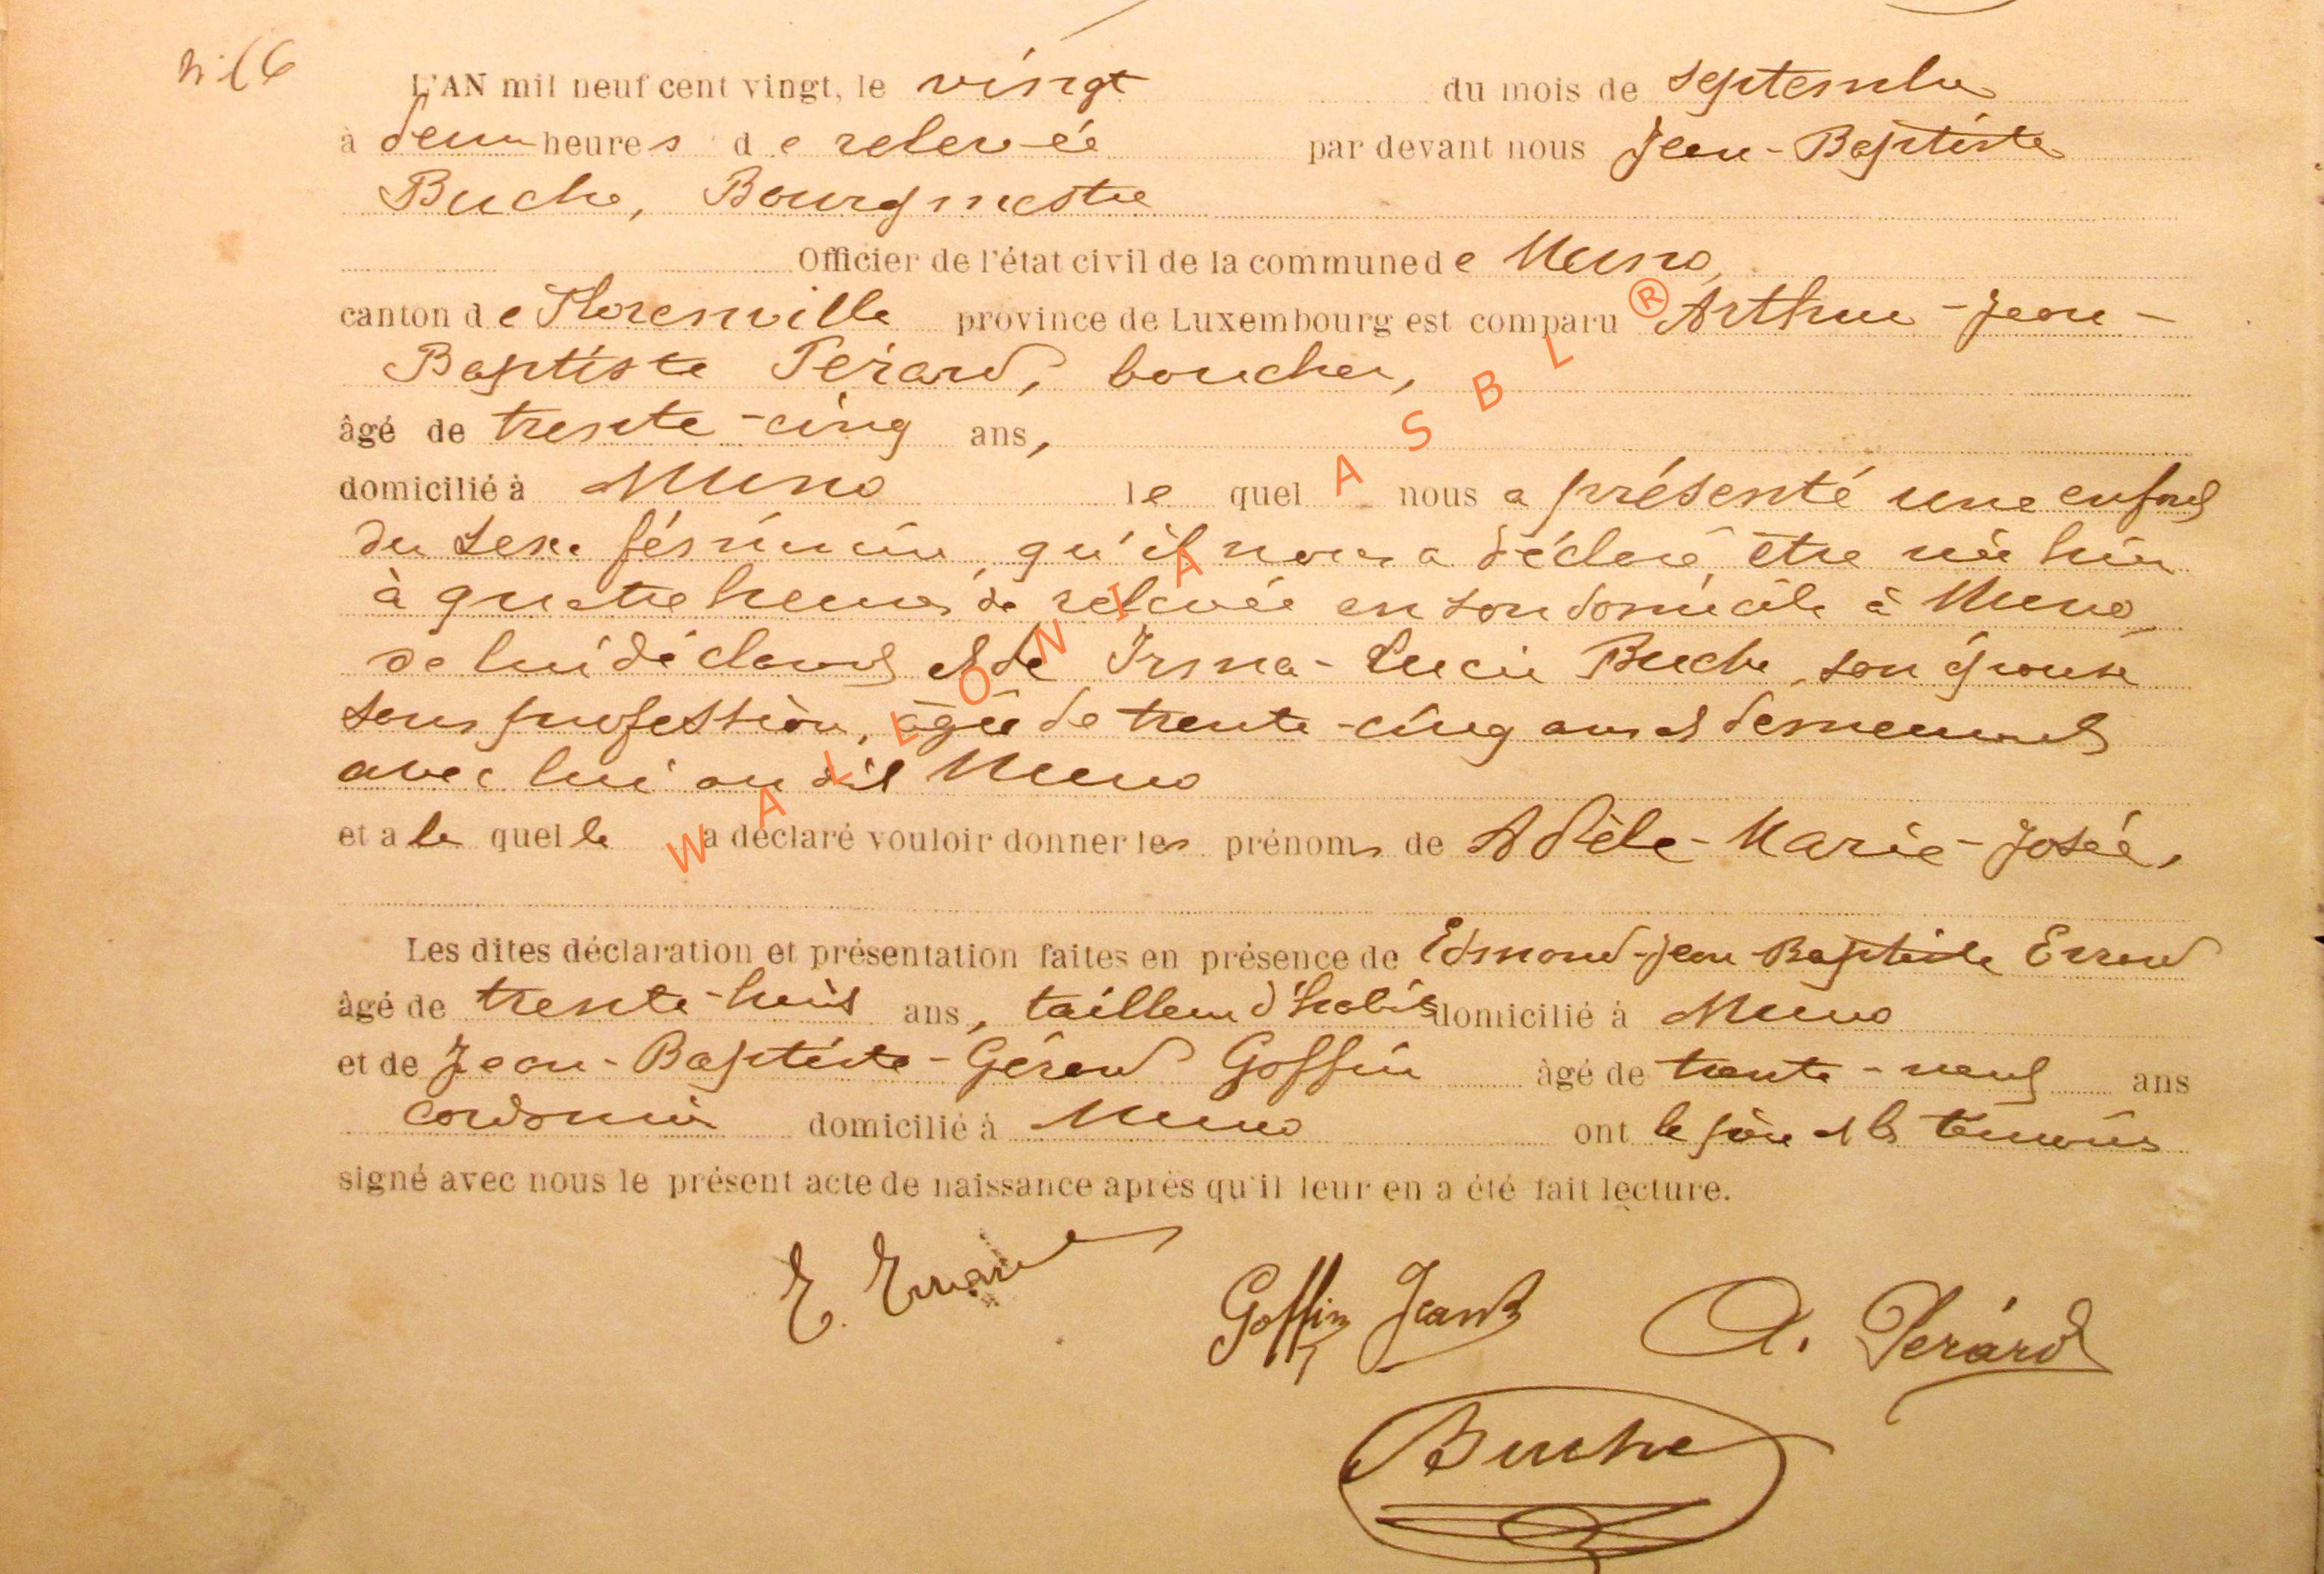 N: 16
L'AN mil neuf cent vingt, le vingt du mois de septembre
à deux heures de relevée par devant nous Jean-Baptiste
Buche, Bourgmestre
Officier de l'état civil de la commune de Muno,
canton de Florenville province de Luxembourg est comparu Arthur-Jean-
Baptiste Pérard, boucher,
âgé de trente-cinq ans,
domicilié à Muno lequel nous a présenté une enfant
du sexe féminin, qu'il nous a déclaré être née hier
à quatre heures de relevée en son domicile à Muno,
de lui déclarant et de Irma-Lucie Buche, son épouse
sans profession, âgée de trente-cinq ans et demeurant
avec lui au dit Muno
et a le quelle a déclaré vouloir donner les prénoms de Adèle-Marie-Josée,
Les dites déclaration et présentation faites en présence de Edmond-Jean-Baptiste Errard
âgé de trente-huit ans, tailleur d'habits domicilié à Muno
et de Jean-Baptiste-Gérard Goffin âgé de trente-neuf ans
cordonnier domicilié à Muno ont le père et les témoins
signé avec nous le présent acte de naissance après qu'il leur en a été fait lecture.
E. Errard
Goffin Jean B
A. Pérard
Buche
WALLONIA ASBL ®